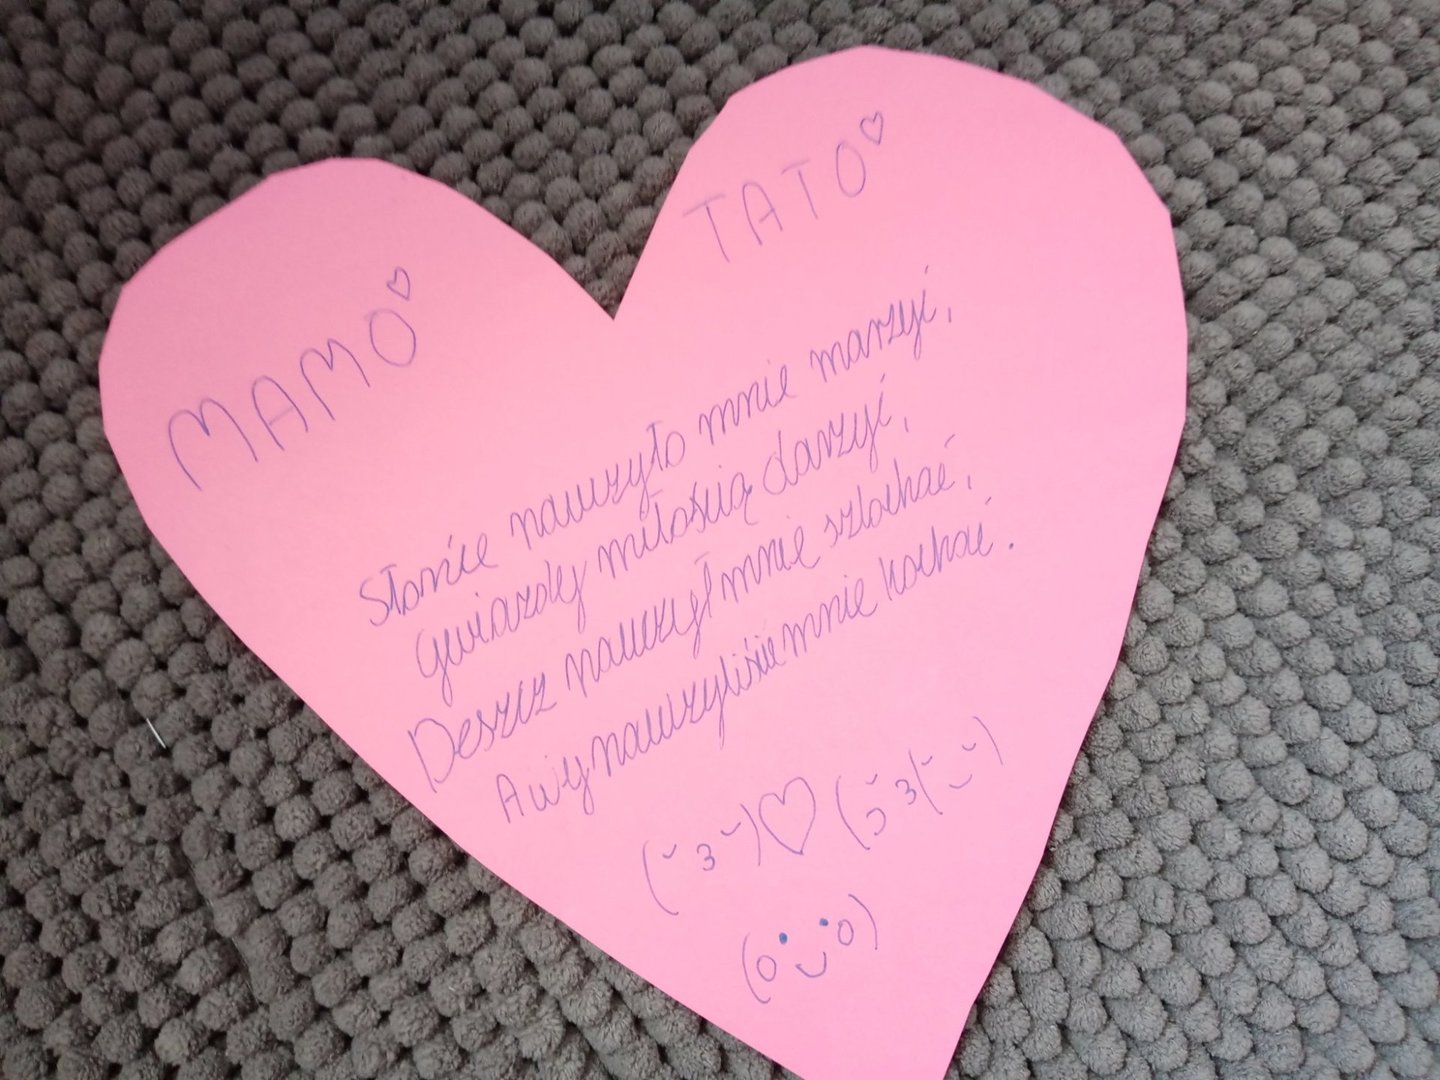 MAMO♡
TATO♡
Słońce nauczyło mnie marzyć,
Gwiazdy miłością darzyć,
Deszcz nauczył mnie szlochać,
A wy nauczyliście mnie kochać.
(˘3˘)♡(˘3(˘⌣˘)
(o•⌣•o)